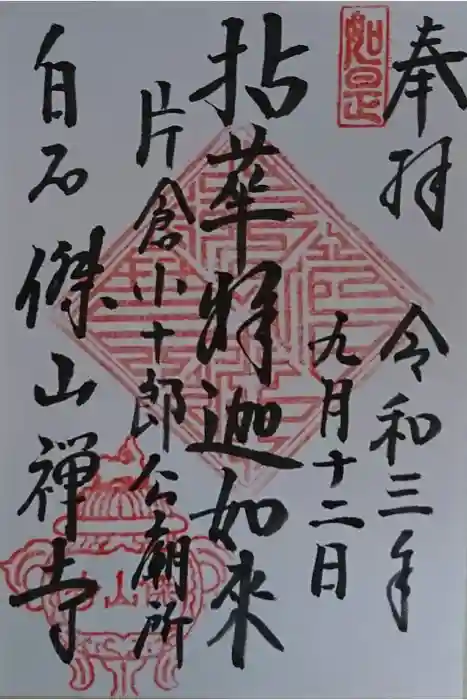 奉拝
令和三年
九月十二日
如是
拈華釋迦如来
片倉小十郎公廟所
白石 傑山禅寺